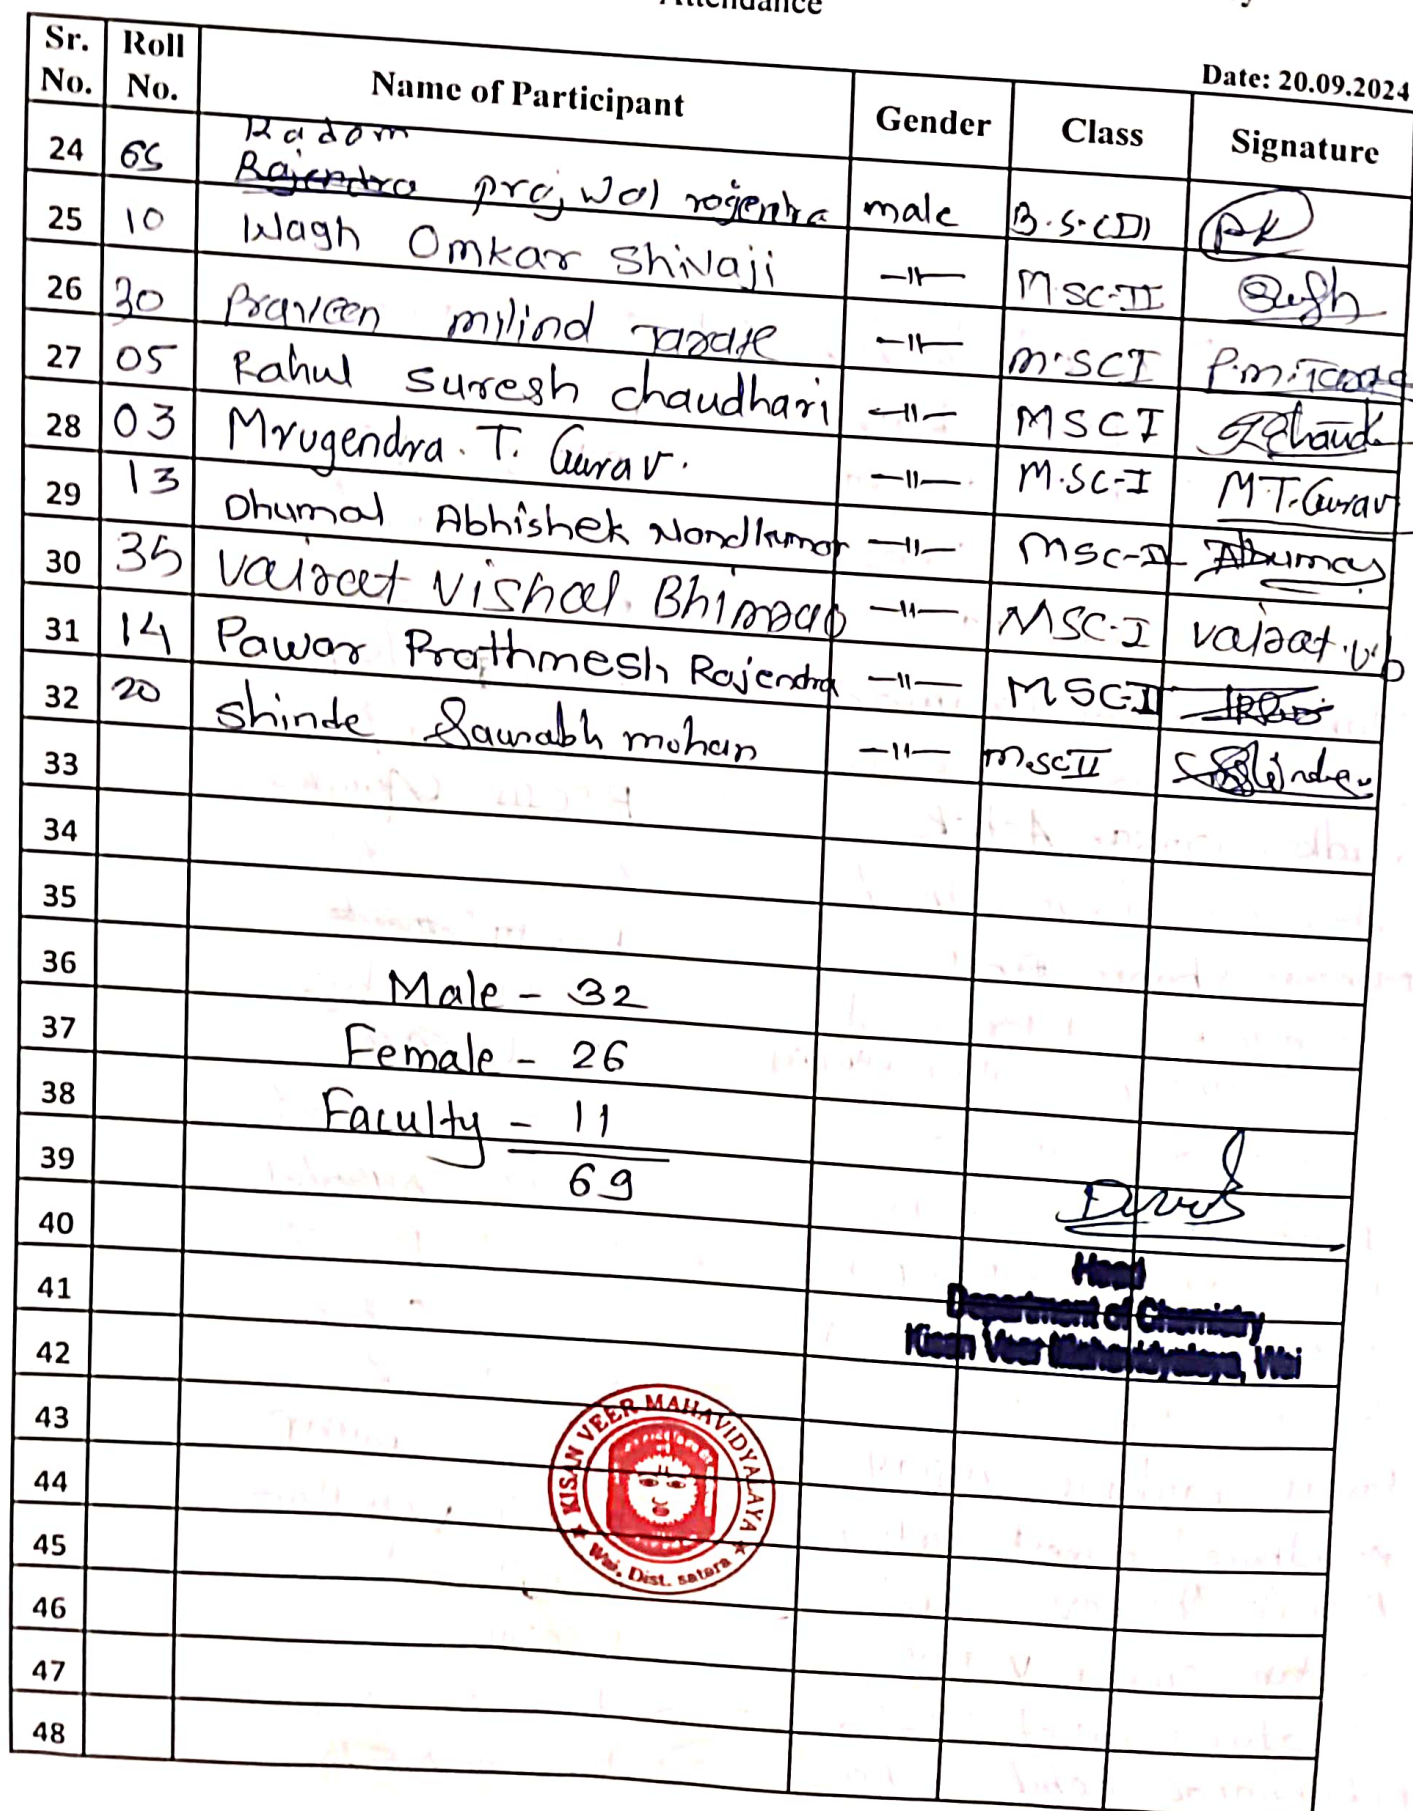 Attendance
Date: 20.09.2024
Sr. No. Roll No. Name of Participant Gender Class Signature
24 65 Kadam prajwal rajentra male B.S.C(II) PK
25 10 Wagh Omkar Shivaji -11- M SC-II
26 30 Praveen milind Tarate -11- M.SC I P.m.
27 05 Rahul Suresh chaudhari -11- MSC I
28 03 Mrugendra. T. Gurav. -11- M.SC-I M.T.Gurav
29 13 Dhumal Abhishek Nandkumar -11- MSC-II
30 35 Vairat Vishal Bhimrao -11- MSC-I vairat.v.b
31 14 Pawar Prathmesh Rajendra -11- MSC-I
32 20 Shinde Saurabh mohan -11- M.SC II
33
34
35
36
Male - 32
37
Female - 26
38
Faculty - 11
39
69
40
Head
41
Department of Chemistry
42
Kisan Veer Mahavidyalaya, Wai
43
KISAN VEER MAHAVIDYALAYA
44
45
Wai, Dist. satara
46
47
48